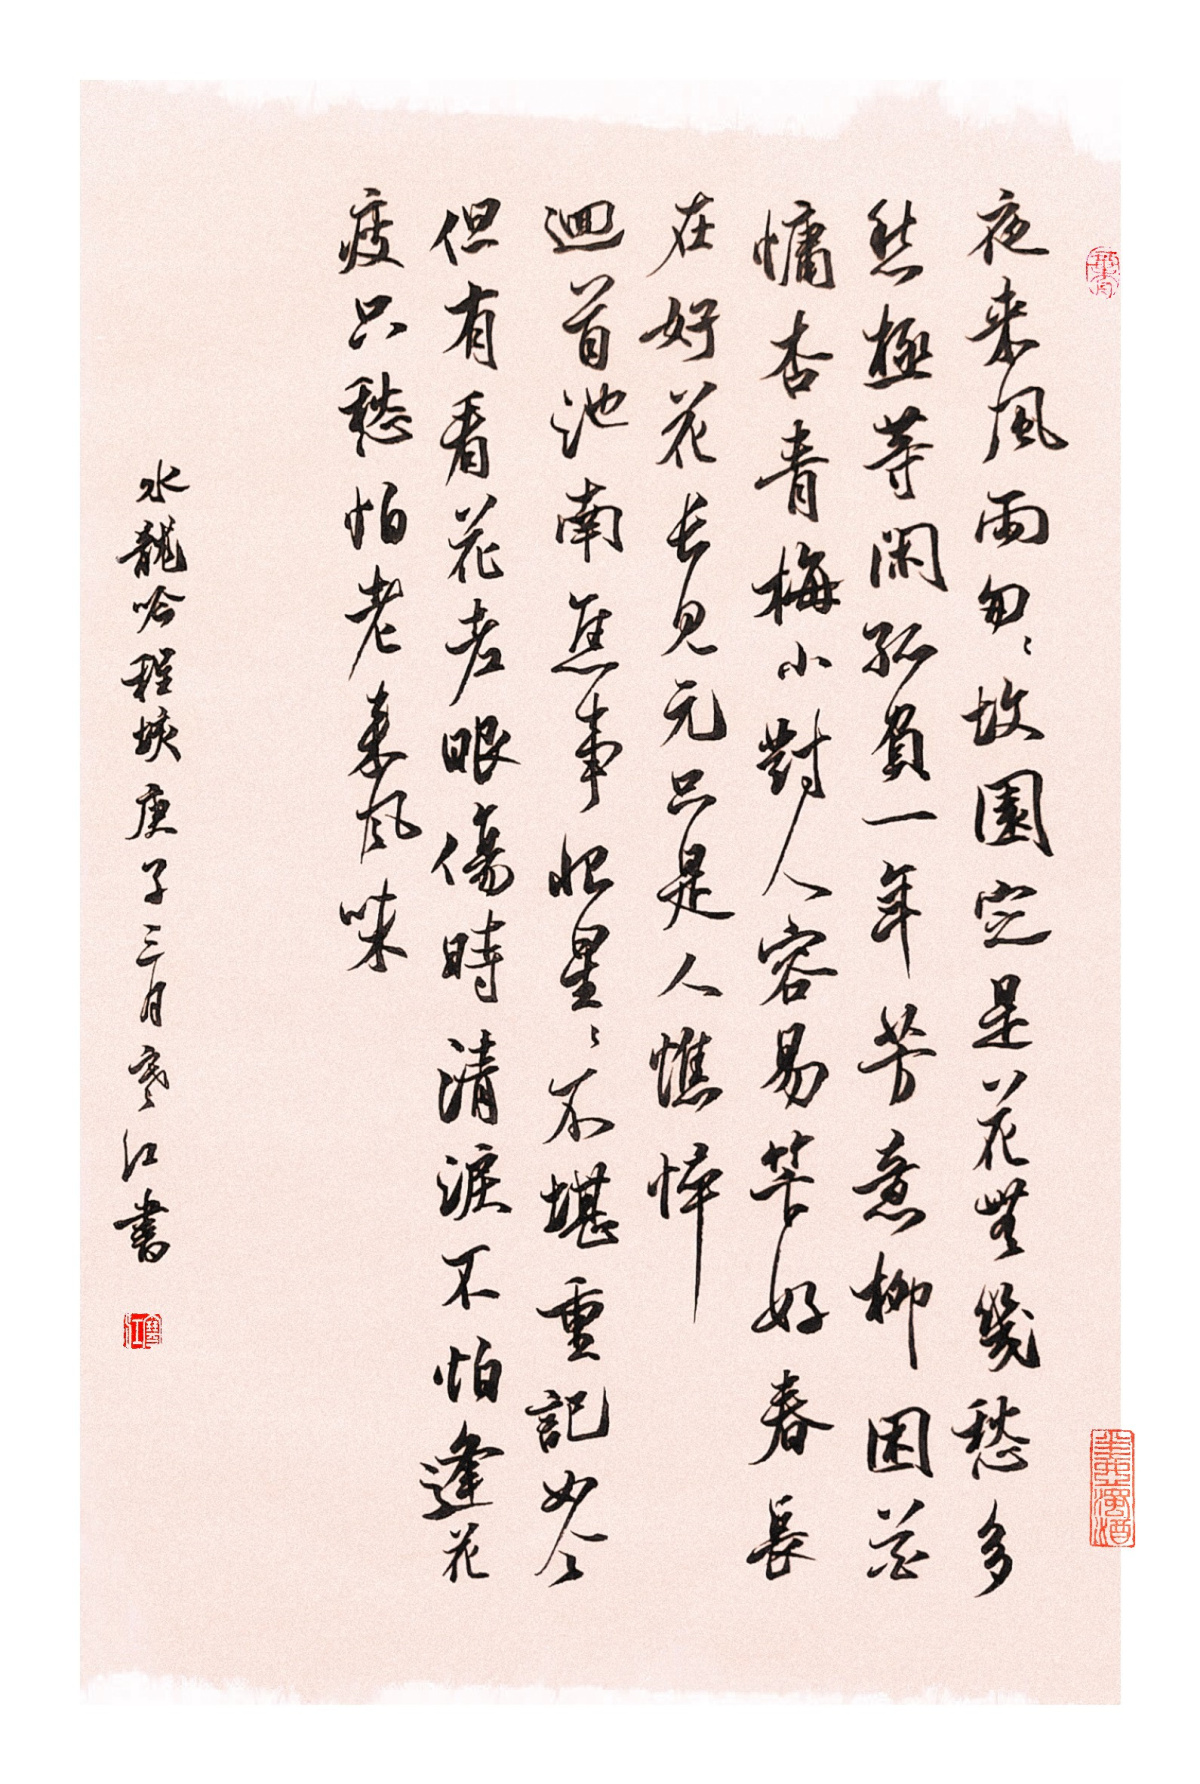 夜来風雨匆〻故園定是花無幾愁多
愁極等閑孤負一年芳意柳困花
慵杏青梅小對人容易算好春長
在好花長見元只是人憔悴
迴首池南舊事恨星〻不堪重記如今
但有看花老眼傷時清淚不怕逢花
瘦只愁怕老来風味
水龍吟程垓庚子三月寒江書
寒江